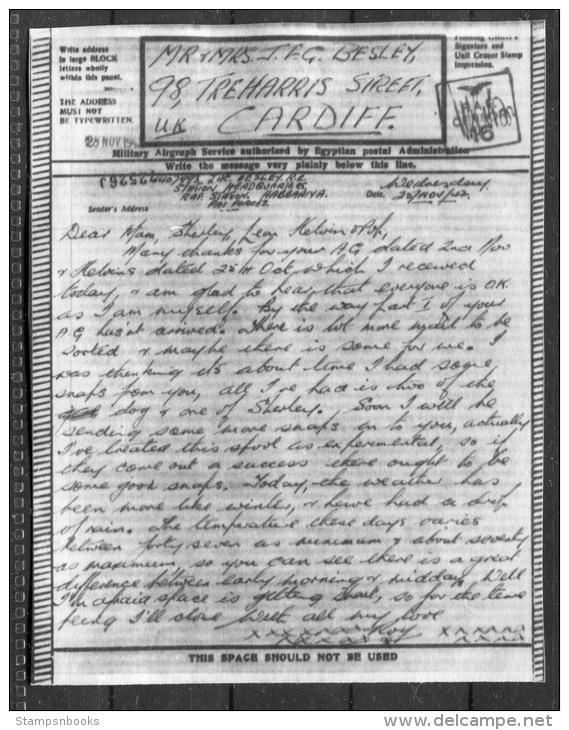 Write address
in large BLOCK
letters wholly
within this panel.
THE ADDRESS
MUST NOT
BE TYPEWRITTEN.
28 NOV 194
MR & MRS. J.F.G. BESLEY,
98, TREHARRIS STREET,
CARDIFF.
UK
Signature and
Unit Censor Stamp
Impression.
Military Airgraph Service authorised by Egyptian postal Administration
Write the message very plainly below this line.
BESLEY. R.E.
STATION HEADQUARTERS
RAF STATION HABBANIYA.
Sender's Address
Wednesday.
Date. 25/NOV/42.
Dear Mam, Sherley, Len Kelvin & Pop,
Many thanks for your A.G dated 2nd Nov
& Kelvins dated 25th Oct, which I received
today, & am glad to hear that everyone is O.K.
as I am myself. By the way part I of your
A.G hasn't arrived. There is lot more mail to be
sorted & maybe there is some for me. I
was thinking its about time I had some
snaps from you, all I've had is two of the
dog & one of Sherley. Soon I will be
sending some more snaps on to you, actually
I've treated this spool as experimental, so if
they come out a success there ought to be
some good snaps. Today, the weather has
been more like winter, & have had a drop
of rain. The temperature these days varies
between forty seven as minimum & about seventy
as maximum, so you can see there is a great
difference between early morning & midday. Well
I'm afraid space is getting short, so for the time
being I'll close with all my love
xxxxxxx Roy xxxxxx
THIS SPACE SHOULD NOT BE USED
Stampsnbooks
www.delcampe.net